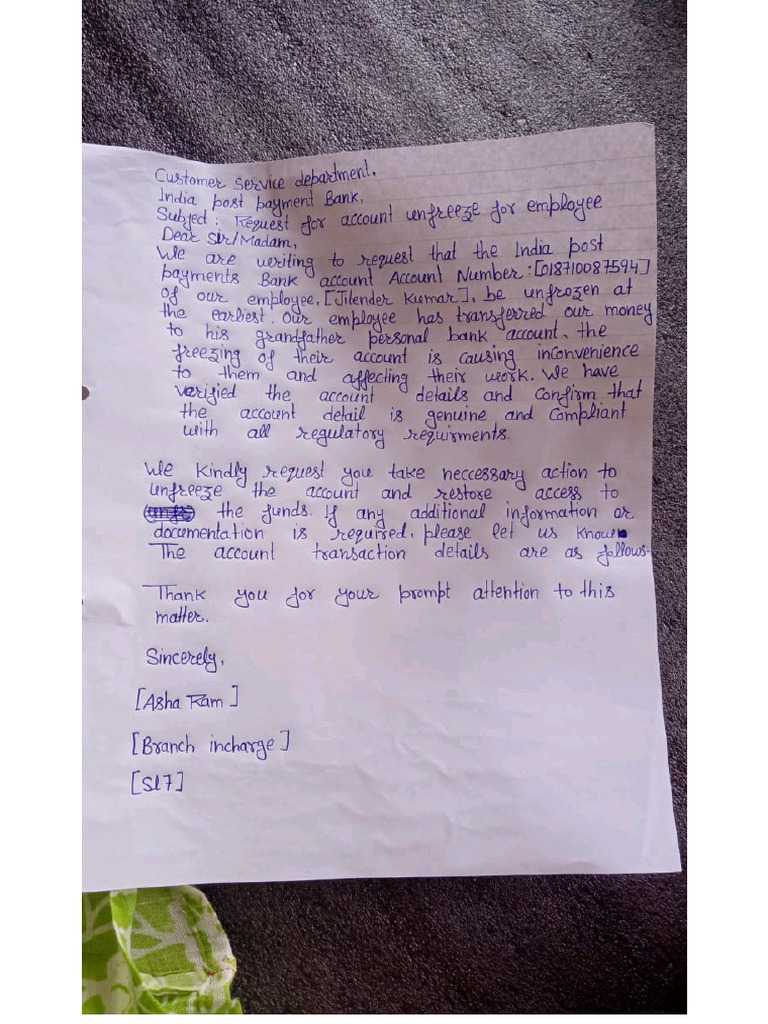 Customer Service department,
India post payment Bank,
Subject : Request for account unfreeze for employee
Dear Sir/Madam,
We are writing to request that the India post
payments Bank account Account Number : [018710087594]
of our employee, [Jitender Kumar], be unfrozen at
the earliest. Our employee has transferred our money
to his grandfather personal bank account, the
freezing of their account is causing inconvenience
to them and affecting their work. We have
verified the account details and confirm that
the account detail is genuine and compliant
with all regulatory requirments.
We kindly request you take neccessary action to
unfreeze the account and restore access to
the funds. If any additional information or
documentation is required, please let us know
The account transaction details are as follows-
Thank you for your prompt attention to this
matter.
Sincerely,
[Asha Ram]
[Branch incharge]
[S17]